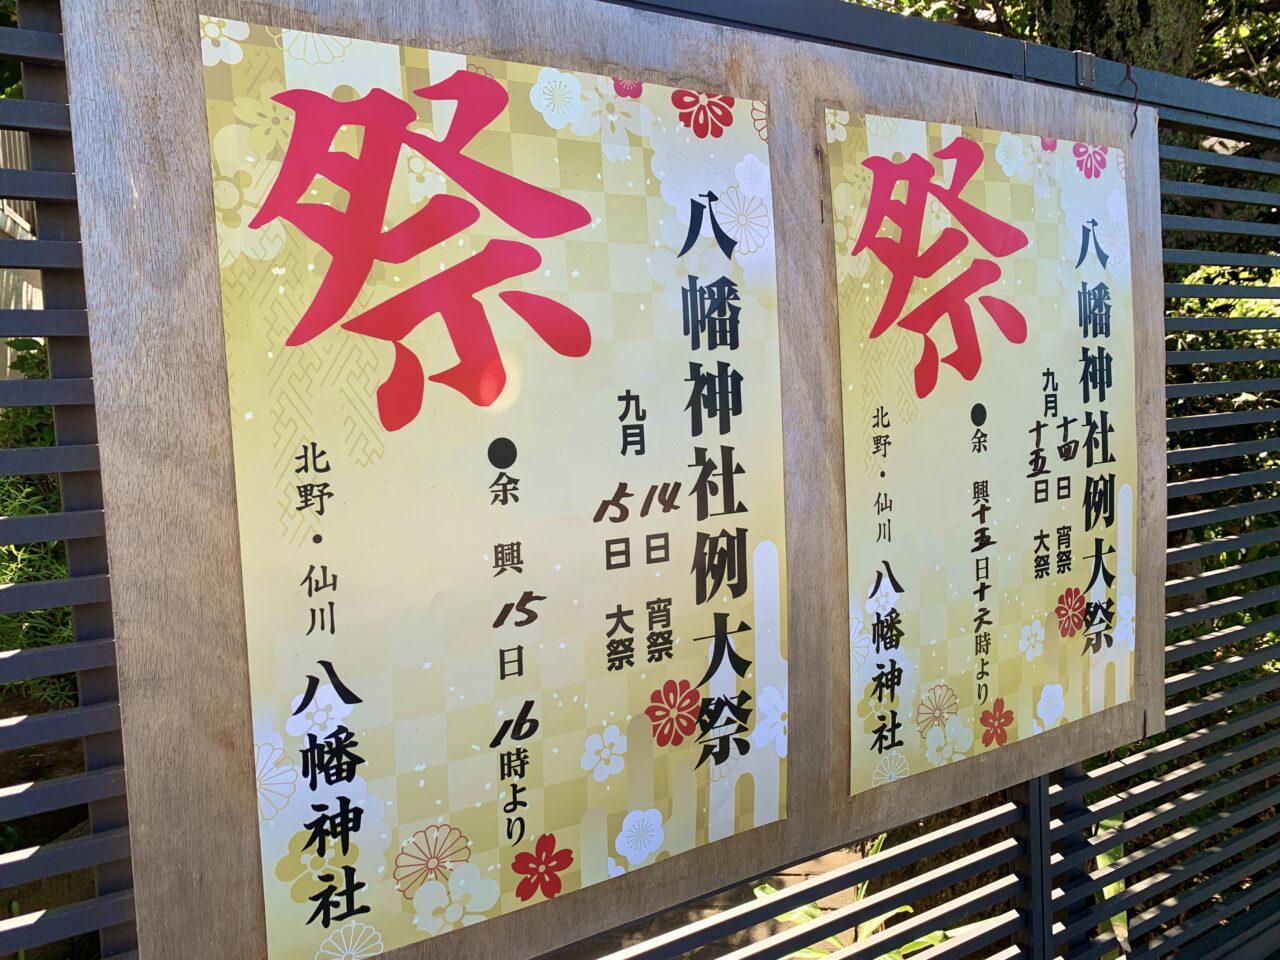 祭
八幡神社例大祭
九月
14日 宵祭
15日 大祭
●余興 15日 16時より
北野・仙川 八幡神社
祭
八幡神社例大祭
九月
十四日 宵祭
十五日 大祭
●余興十五日十六時より
北野・仙川 八幡神社